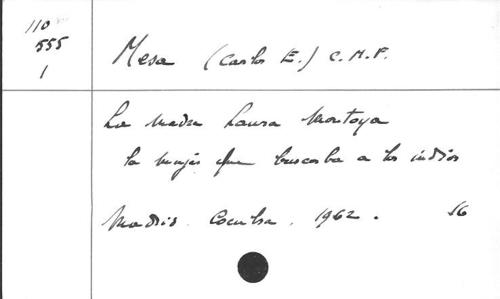 110
555
1
Mesa (Carlos E.) C.M.F.
La Madre Laura Montoya
la mujer que buscaba a los indios
Madrid. Coculsa. 1962. 16